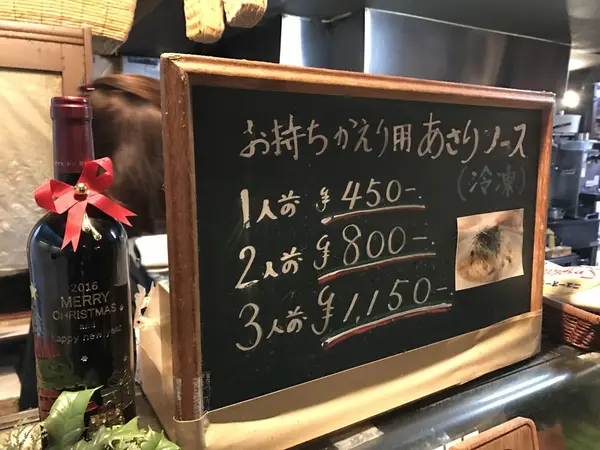 お持ちかえり用あさりソース
(冷凍)
1人前 ¥450-
2人前 ¥800-
3人前 ¥1,150-
2016
MERRY
CHRISTMAS
and
happy new year